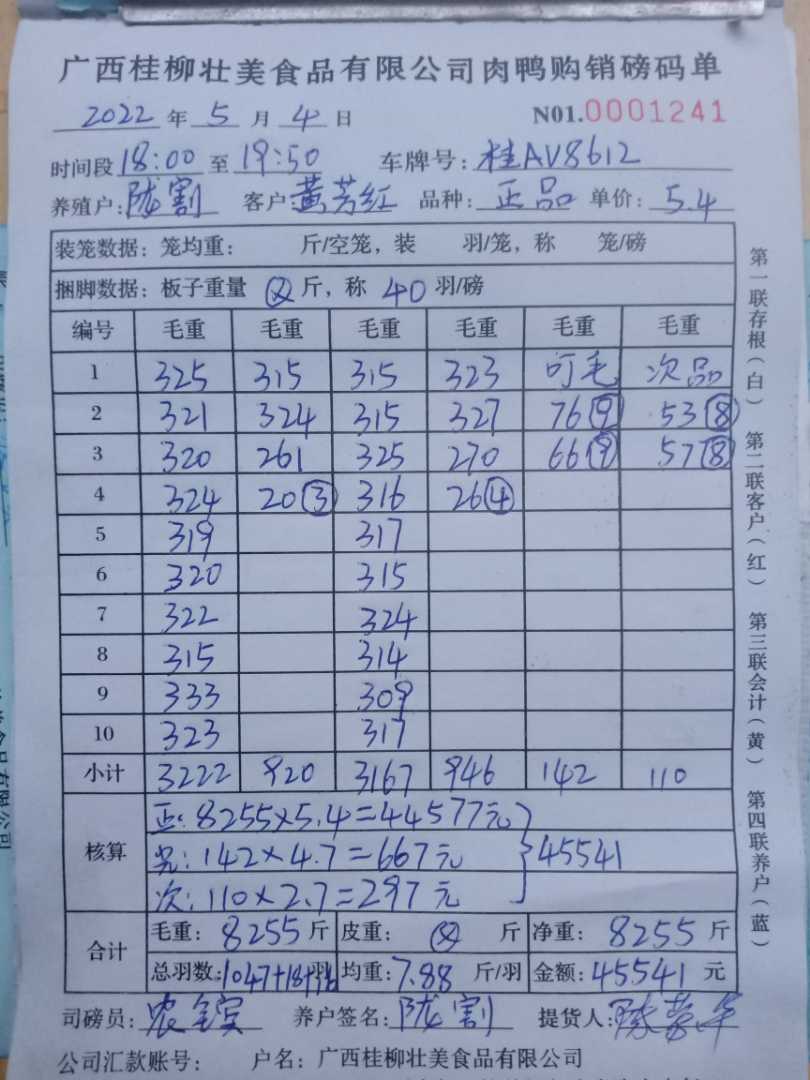 广西桂柳壮美食品有限公司肉鸭购销磅码单
2022 年 5 月 4 日 N01.0001241
时间段 18:00 至 19:50 车牌号: 桂AV8612
养殖户: 陇割 客户 黄芳红 品种: 正品 单价: 5.4
装笼数据: 笼均重: 斤/空笼, 装 羽/笼, 称 笼/磅
捆脚数据: 板子重量 斤, 称 40 羽/磅
编号 毛重 毛重 毛重 毛重 毛重 毛重
1 325 315 315 323 叮毛 次品
2 321 324 315 327 76⑨ 53⑧
3 320 261 325 270 66⑨ 57⑧
4 324 20③ 316 26④
5 319 317
6 320 315
7 322 324
8 315 314
9 333 309
10 323 317
小计 3222 920 3167 946 142 110
核算
正: 8255×5.4=44577元
光: 142×4.7=667元 } 45541
次: 110×2.7=297元
合计
毛重: 8255 斤 皮重: 斤 净重: 8255 斤
总羽数: 1047+18+16 羽 均重: 7.88 斤/羽 金额: 45541 元
司磅员: 养户签名: 陇割 提货人:
公司汇款账号: 户名: 广西桂柳壮美食品有限公司
第一联存根(白) 第二联客户(红) 第三联会计(黄) 第四联养户(蓝)